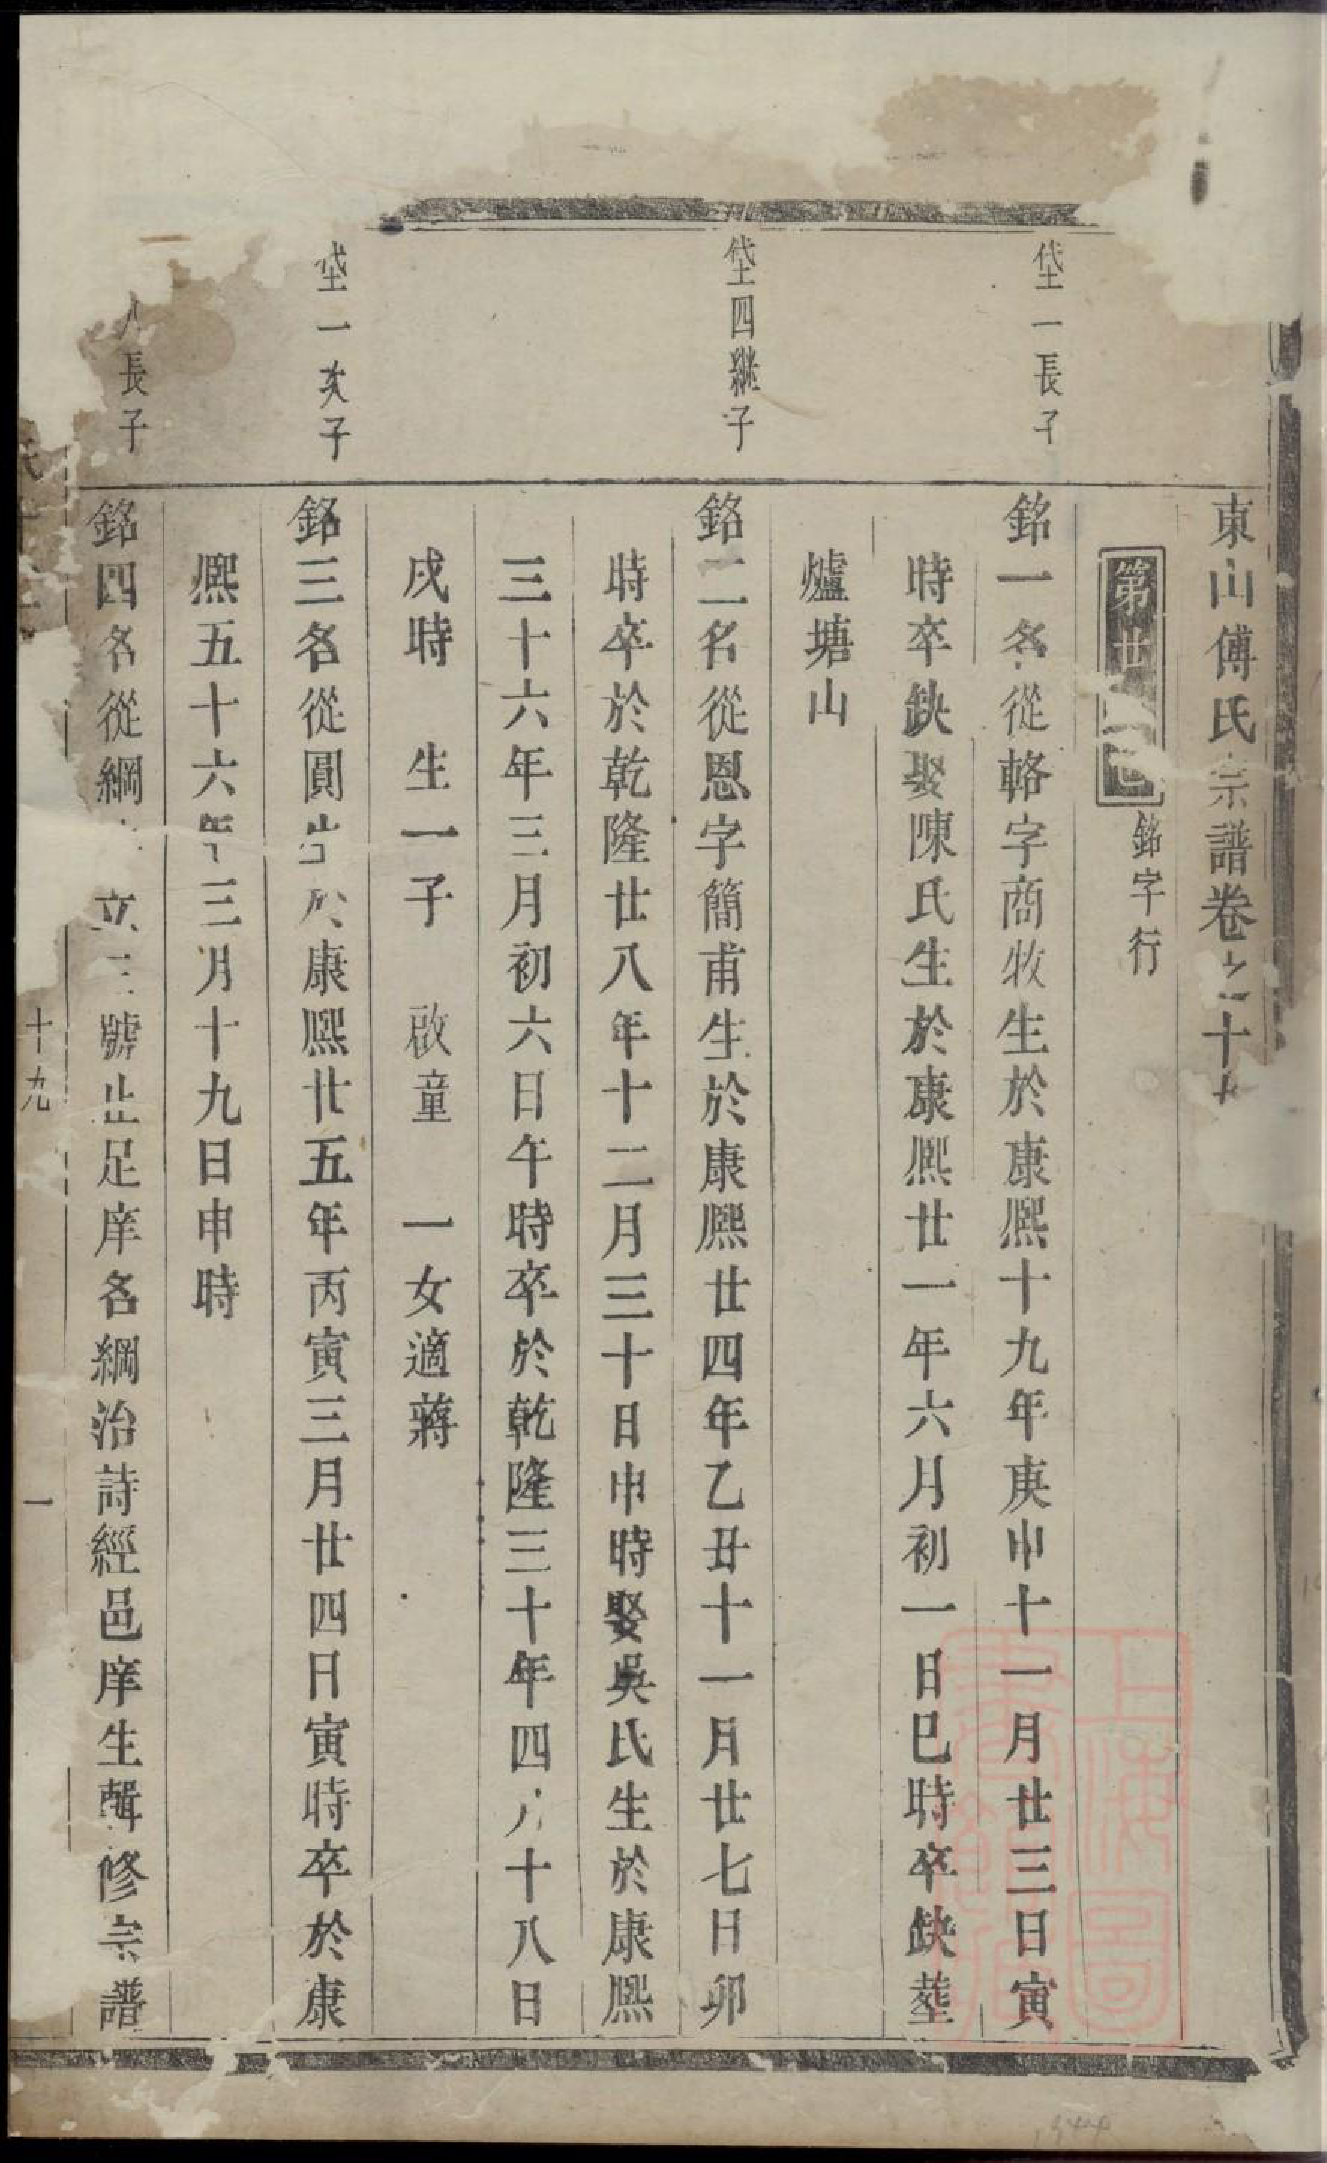 東山傅氏宗譜卷之十
第廿世
銘字行
垈一長子
銘一名從輅字商牧生於康熙十九年庚申十一月廿三日寅
時卒缺娶陳氏生於康熙廿一年六月初一日巳時卒缺塟
爐塘山
垈四繼子
銘二名從恩字簡甫生於康熙廿四年乙丑十一月廿七日卯
時卒於乾隆廿八年十二月三十日申時娶吳氏生於康熙
三十六年三月初六日午時卒於乾隆三十年四月十八日
戌時 生一子 啟童 一女適蔣
垈一次子
銘三名從圓生於康熙廿五年丙寅三月廿四日寅時卒於康
熙五十六年三月十九日申時
長子
銘四名從綱立三號止足庠名綱治詩經邑庠生輯修宗譜
十九
一
上海圖書館藏